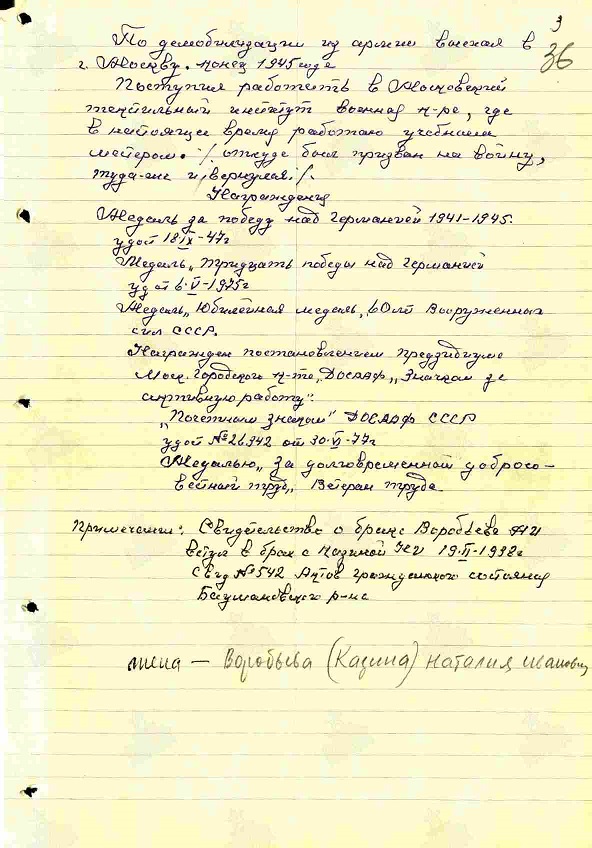 3
36
По демобилизации из армии выехал в
г. Москву. конец 1945 года
Поступил работать в Московский
текстильный институт военная к-ра, где
в настоящее время работаю учебным
мастером. ·/. откуда был призван на войну,
туда-же и вернулся ·/.
Награждения
Медаль за победу над Германией 1941-1945.
удост 18 IX-47г
Медаль „тридцать победы над Германией
уд от 6-V-1975г
Медаль „Юбилейная медаль, 60 лет Вооруженных
сил СССР.
Награжден постановлением преззидиума
Моск. Городского к-та „ДОСААФ„ Значком за
активную работу":
„Почетным знаком" ДОСААФ СССР
удост №26342 от 30-VI-77г
Медалью„ За долговременной добросо-
вестный труд„ Ветеран труда
Примечание: Свидетельство о браке Воробьева
вступ в брак с Казиной НИ 19-II-1932г
Свид №542 Актов гражданского состояния
Баумановского р-на
жена — Воробьева (Казина) Наталия Ивановн